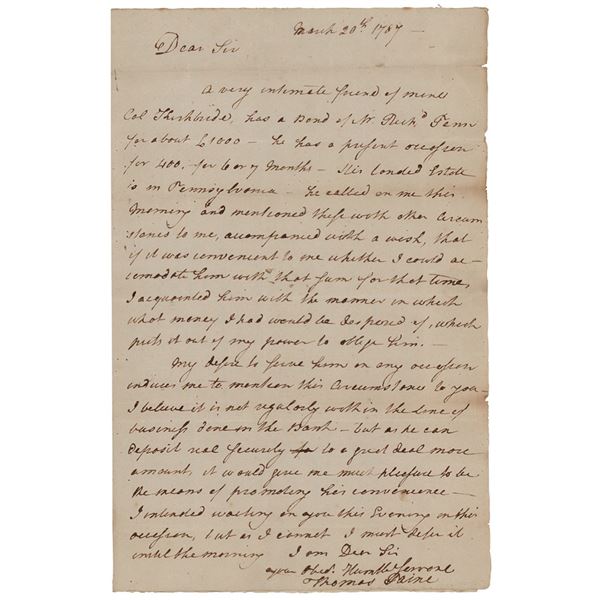 March 20th 1787 —
Dear Sir
A very intimate friend of mine
Col Kirkbride, has a Bond of Mr Richd Penn
for about £1000 — he has a present occasion
for 400, for 6 or 7 Months — His landed Estate
is in Pennsylvania — he called on me this
Morning and mentioned these with other Circum
stances to me, accompanied with a wish, that
if it was convenient to me whether I could ac-
comodate him with that sum for that time,
I acquainted him with the manner in which
what money I had would be disposed of, which
puts it out of my power to oblige him. —
My desire to serve him on any occasion
induces me to mention this Circumstance to you —
I believe it is not regularly within the line of
business done in the Bank — but as he can
deposit real Security to a great deal more
amount, it would give me much pleasure to be
the means of promoting his convenience —
I intended waiting on you this Evening on this
occasion, but as I cannot I must defer it
until the morning I am Dear Sir
your Obedt Humble Servant
Thomas Paine